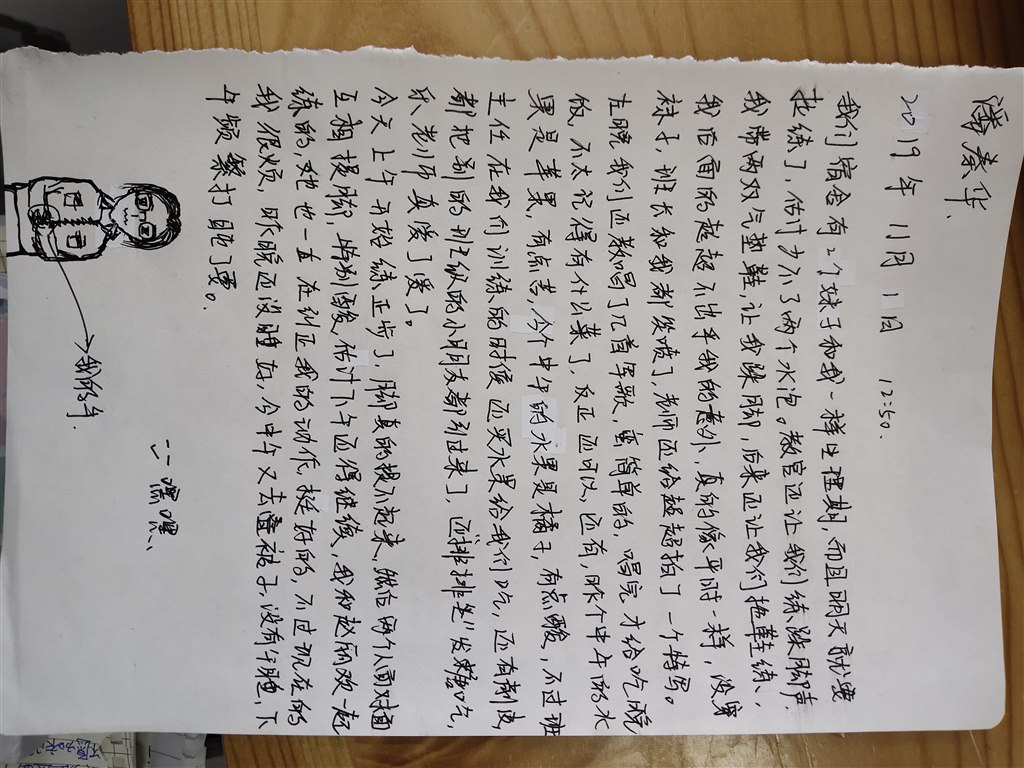 潘美华、
2019年 11月 1日 12:50.
我们宿舍有2个妹子和我一样生理期,而且明天就要
拉练了,估计少不了两个水泡。教官还让我们练跺脚声、
我带两双气垫鞋,让我跺脚,后来还让我们拖鞋练、
我后面的超超不出乎我的意外,真的像平时一样,没穿
袜子,班长和我都笑喷了,老师还给超超拍了一个特写。
左晚我们还教唱了几首军歌,蛮简单的,唱完才给吃晚
饭,不太记得有什么菜了,反正还可以,还有,昨个中午的水
果是苹果,有点苦,今个中午的水果是橘子,有点酸,不过班
主任在我们训练的时候还买水果给我们吃,还有
都把别的班级的小朋友都引过来了,还"排排坐"发糖吃,
乐老师真爱了爱了。
今天上午开始练正步了,脚真的提不起来,然后两个人面对面
互相提脚,特别酸,估计下午还得继续,我和赵丽欢一起
练的,她也一直在纠正我的动作,挺好的,不过现在的
我很烦,昨晚还没睡
,今中午又去叠被子,没有午睡,下
午频繁打瞌了要。
嘿、
我